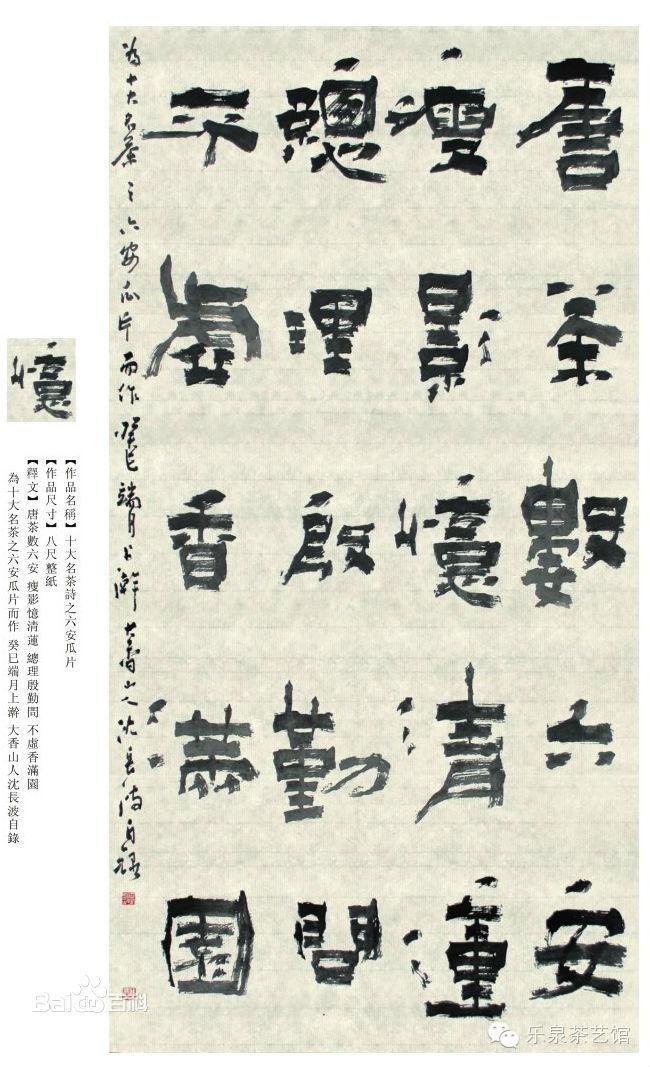 唐茶數六安
瘦影憶清蓮
總理殷勤問
不虛香滿園
為十大名茶之六安瓜片而作 癸巳端月上澣 大香山人沈長波自錄
憶
【作品名稱】十大名茶詩之六安瓜片
【作品尺寸】八尺整紙
【釋文】唐茶數六安 瘦影憶清蓮 總理殷勤問 不虛香滿園
為十大名茶之六安瓜片而作 癸巳端月上澣 大香山人沈長波自錄
Bai百科
乐泉茶艺馆